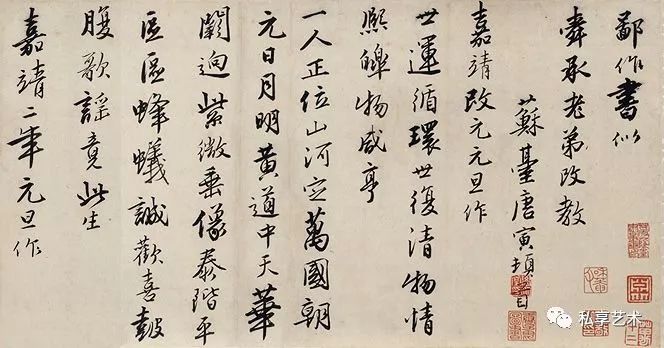 鄙作書似
舜承老弟改教
蘇臺唐寅頓首
嘉靖改元元旦作
世運循環世復清物情
熙皥物咸亨
一人正位山河定萬國朝
元日月明黃道中天華
闕迥紫微垂像泰階平
區區蜂蟻誠歡喜鼓
腹歌謠竟此生
嘉靖二年元旦作
私享艺术